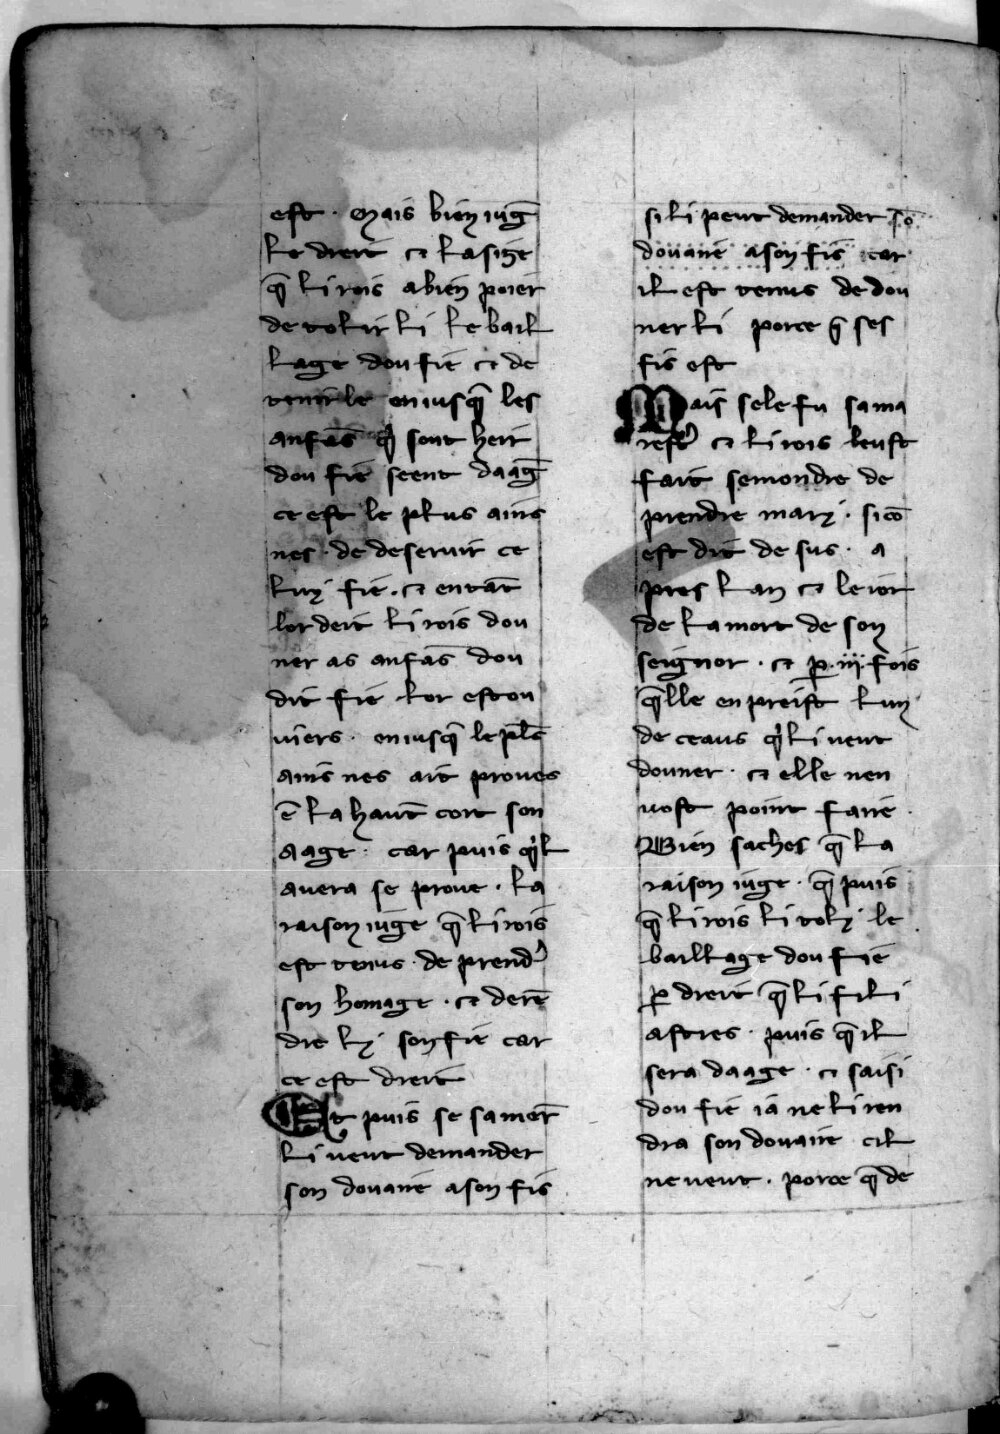 est · mais bien iug̃
le dreit et la sige
q̃ li rois a bien poier
de tolir li le bail
lage dou fie et de
tenir le en iusq̃ les
anfãs q̇ sont heir
dou fie seent daag̃
ce est le plus ains
nes · de deseruir ce
luy fie · et entãt
lor deit li rois dou
ner as anfãs dou
dit fie lor estou
uiers · en iusq̃ le pl̃s
ains nes ait proues
ẽ la haut̃ cort son
aage · car puis q̇l
auera se proue · la
raison iuge q̃ li rois
est tenus · de prend̾
son homage · et derẽ
dre ly son fie car
ce est dreit
Et puis se sa mer̃
li veut demander
son douaire a son fis
si li peut demander sõ
douaire a son fis car
il est tenus de dou
ner li porce q̃ ses
fis est
Mais se le fu sa ma
rest̾ et li rois leust
fait semondre de
prendre mary · si cõ
est dit de sus · a
pres lan et le ior
de la mort de son
seignor · et ꝑ · iii · fois
q̃lle en preist luy
de ceaus q̇ li veut
douner · et elle nen
vost point faire ·
Bien saches q̃ la
raison iuge · q̃ puis
q̃ li rois li toly le
baillage dou fie
ꝑ dreit q̃ li fili
astres · puis q̃ il
sera daage · et saisi
dou fie ia ne li ren
dra son douaire cil
ne veut · porce q̃ de